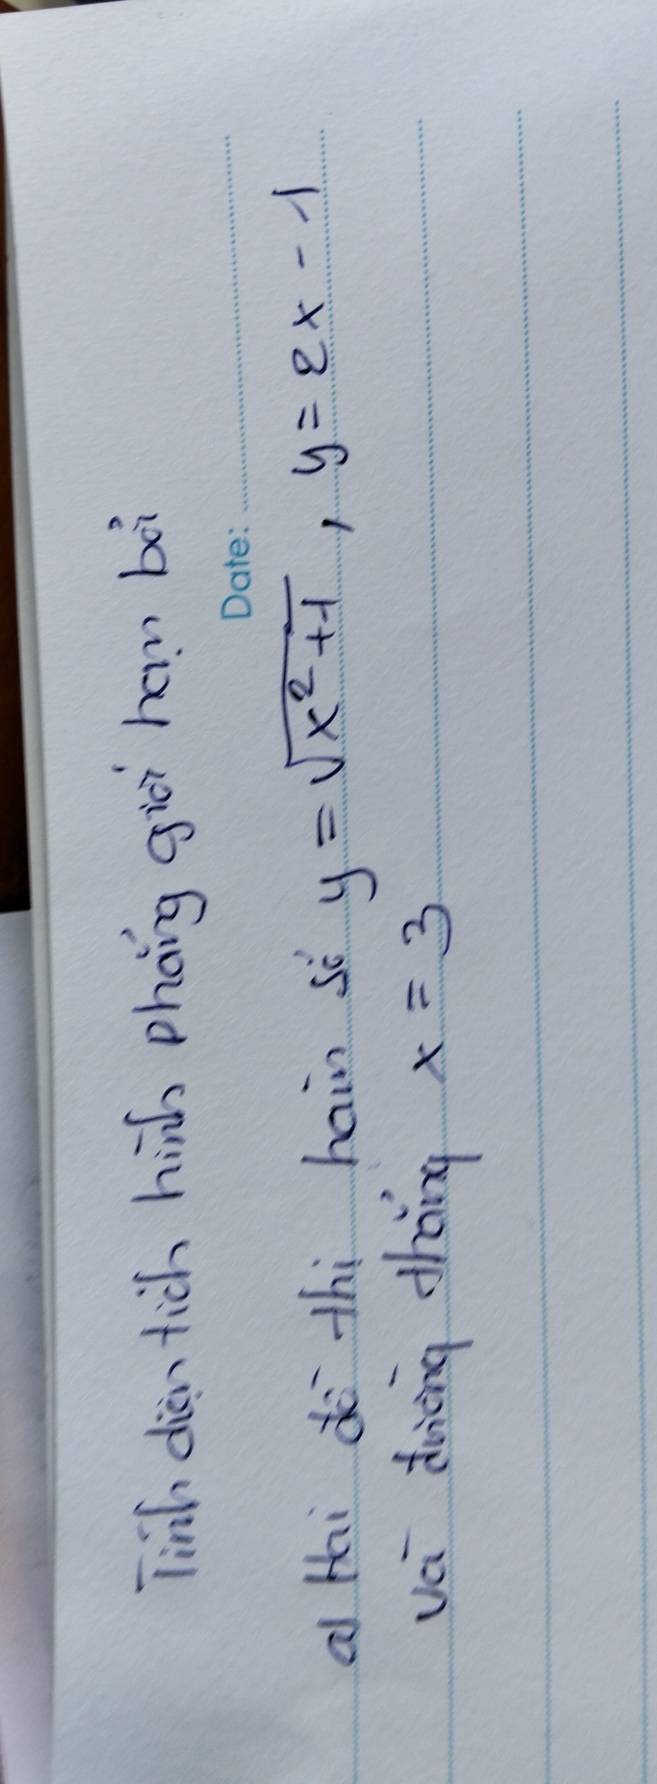 Tính diện tích hình phẳng giới hạn bởi
Date:
a) Hai đồ thị hàm số y = √x²+1 , y = 2x - 1
và đường thẳng x = 3